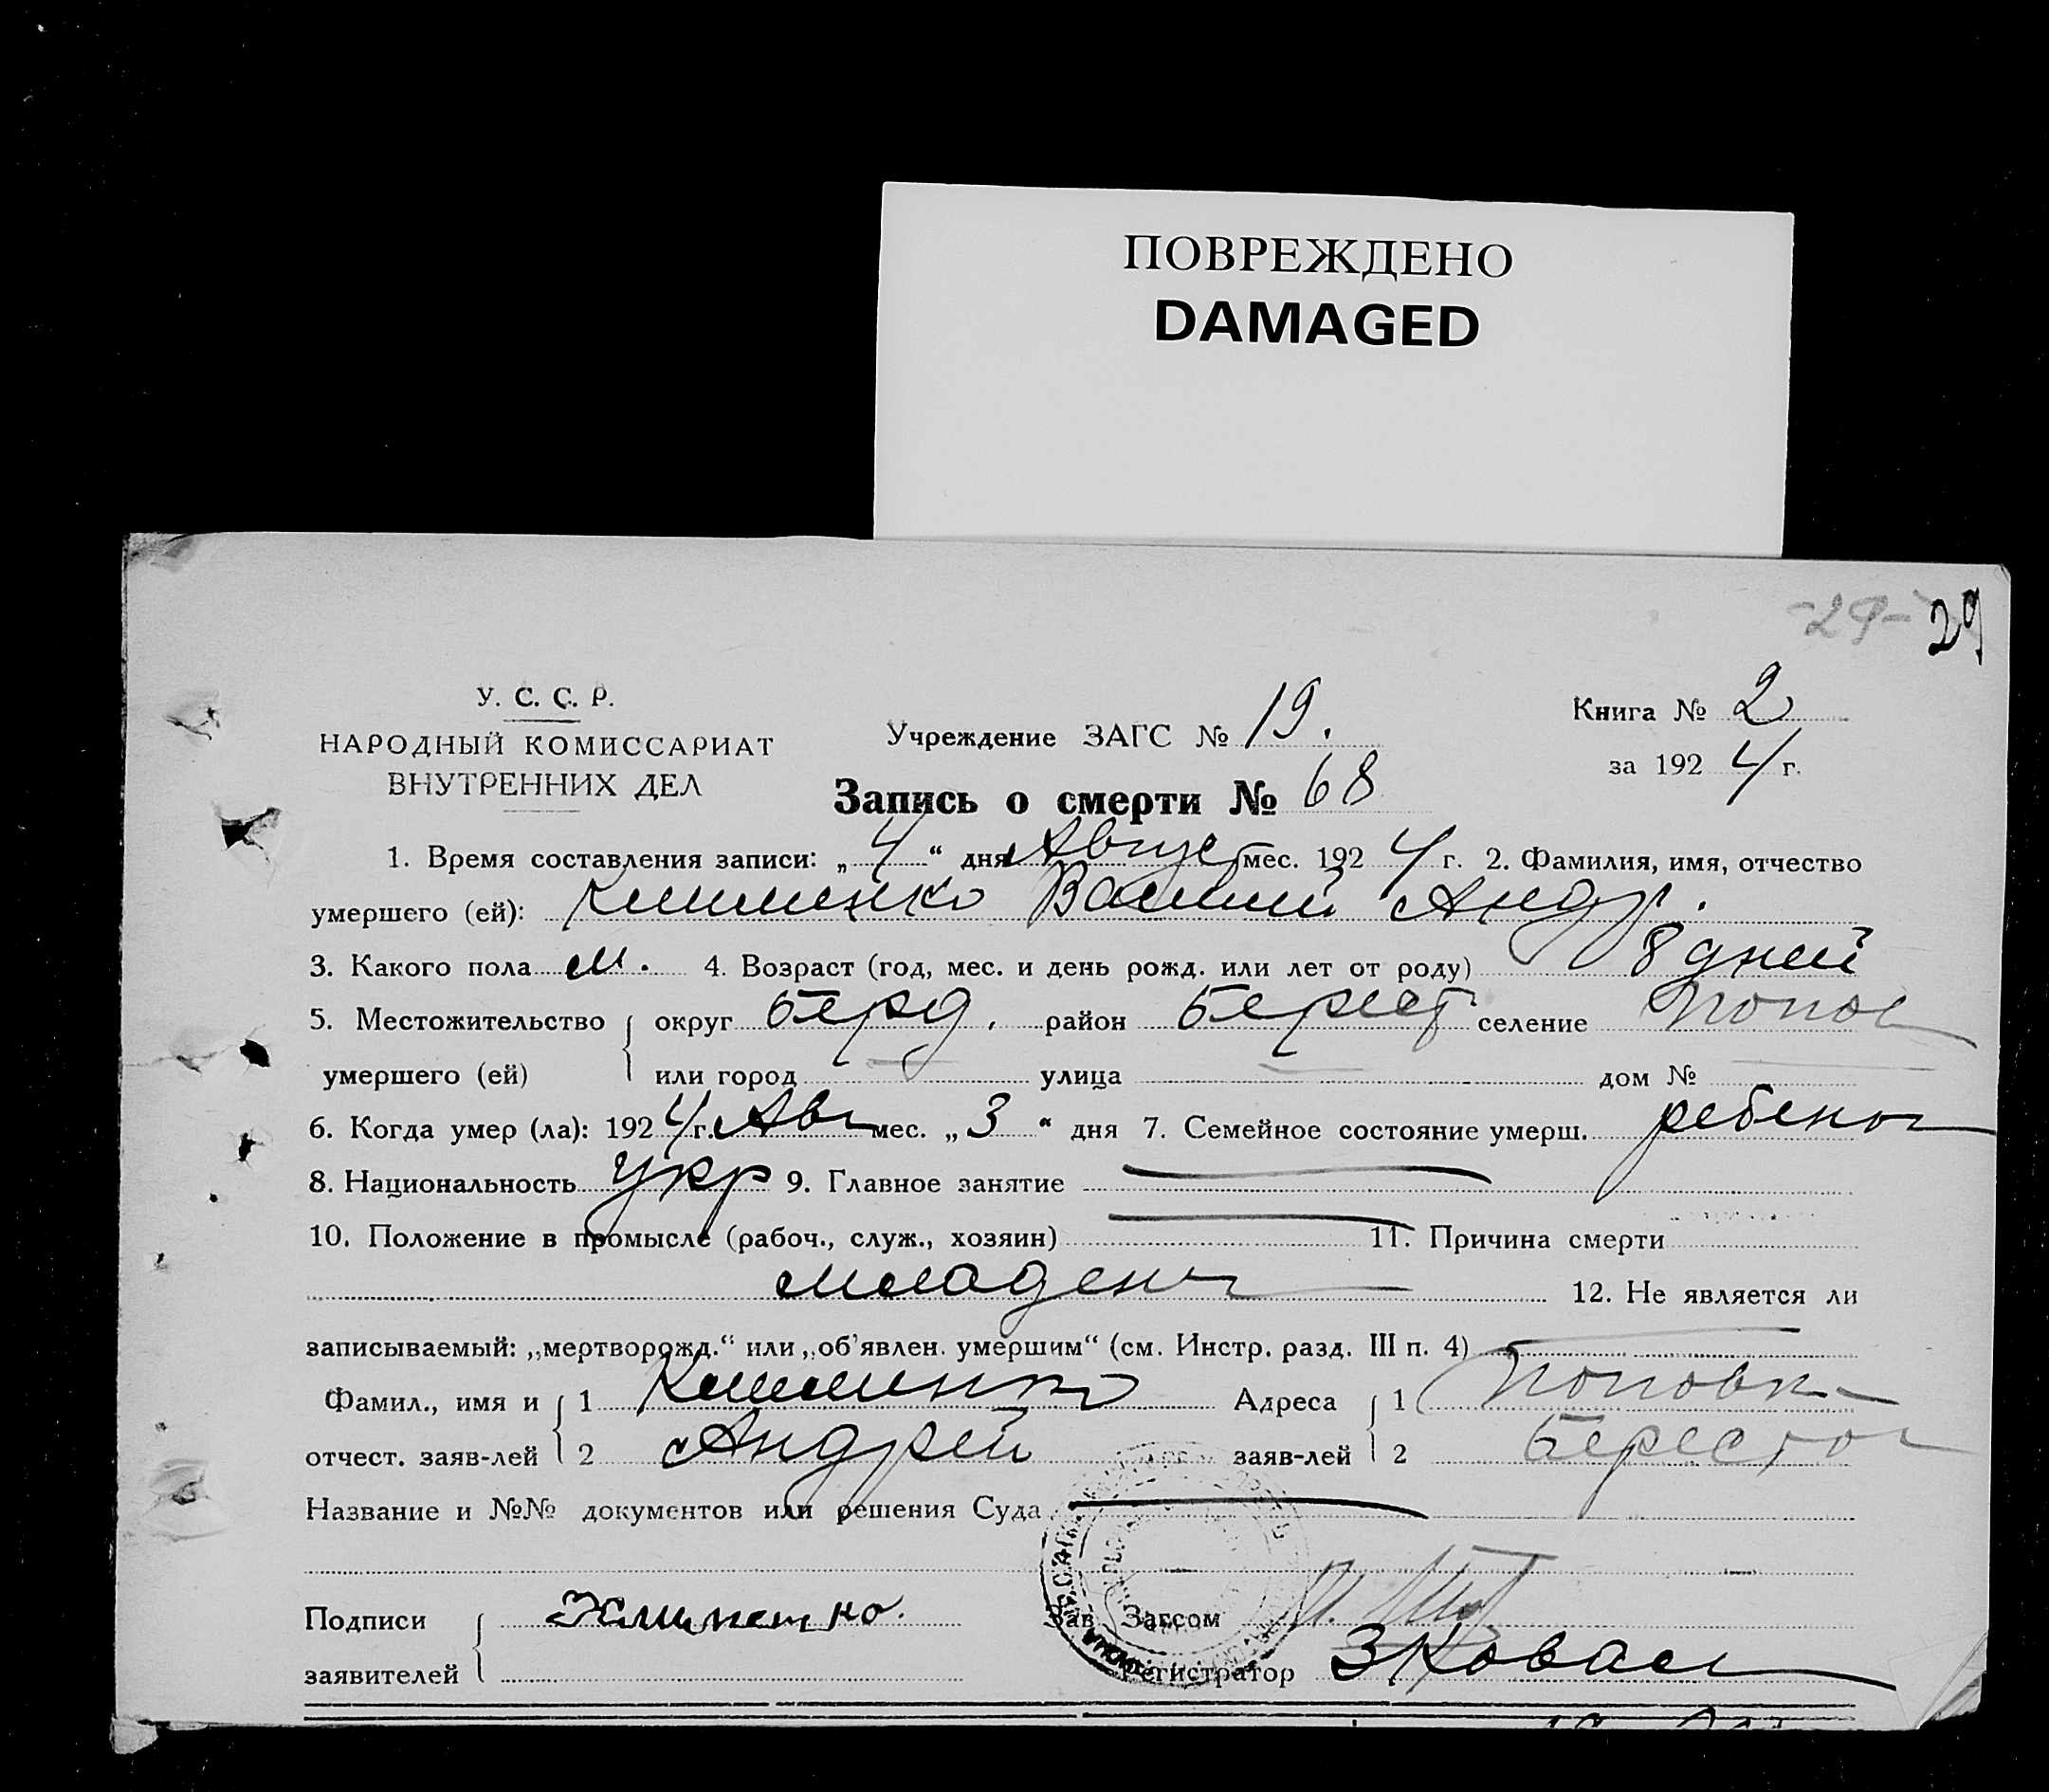 ПОВРЕЖДЕНО
DAMAGED
-29- 29
У. С. С. Р.
НАРОДНЫЙ КОМИССАРИАТ
ВНУТРЕННИХ ДЕЛ
Учреждение ЗАГС № 19.
Книга № 2
за 1924 г.
Запись о смерти № 68
1. Время составления записи: „4“ дня Август мес. 1924 г. 2. Фамилия, имя, отчество
умершего (ей): Клименко Василий Андр.
3. Какого пола м. 4. Возраст (год, мес. и день рожд. или лет от роду) 8 дней
5. Местожительство округ Берд. район Берест селение Попов
умершего (ей) или город — улица — дом № —
6. Когда умер (ла): 1924 г. Авг мес. „3“ дня 7. Семейное состояние умерш. ребенок
8. Национальность укр 9. Главное занятие —
10. Положение в промысле (рабоч., служ., хозяин) — 11. Причина смерти
младен
12. Не является ли
записываемый: „мертворожд.“ или „об'явлен. умершим“ (см. Инстр. разд. III п. 4) —
Фамил., имя и 1 Клименко Адреса 1 Поповк
отчест. заяв-лей 2 Андрей заяв-лей 2 Берестов
Название и №№ документов или решения Суда —
Подписи Зав Загсом
заявителей Регистратор З Ковал